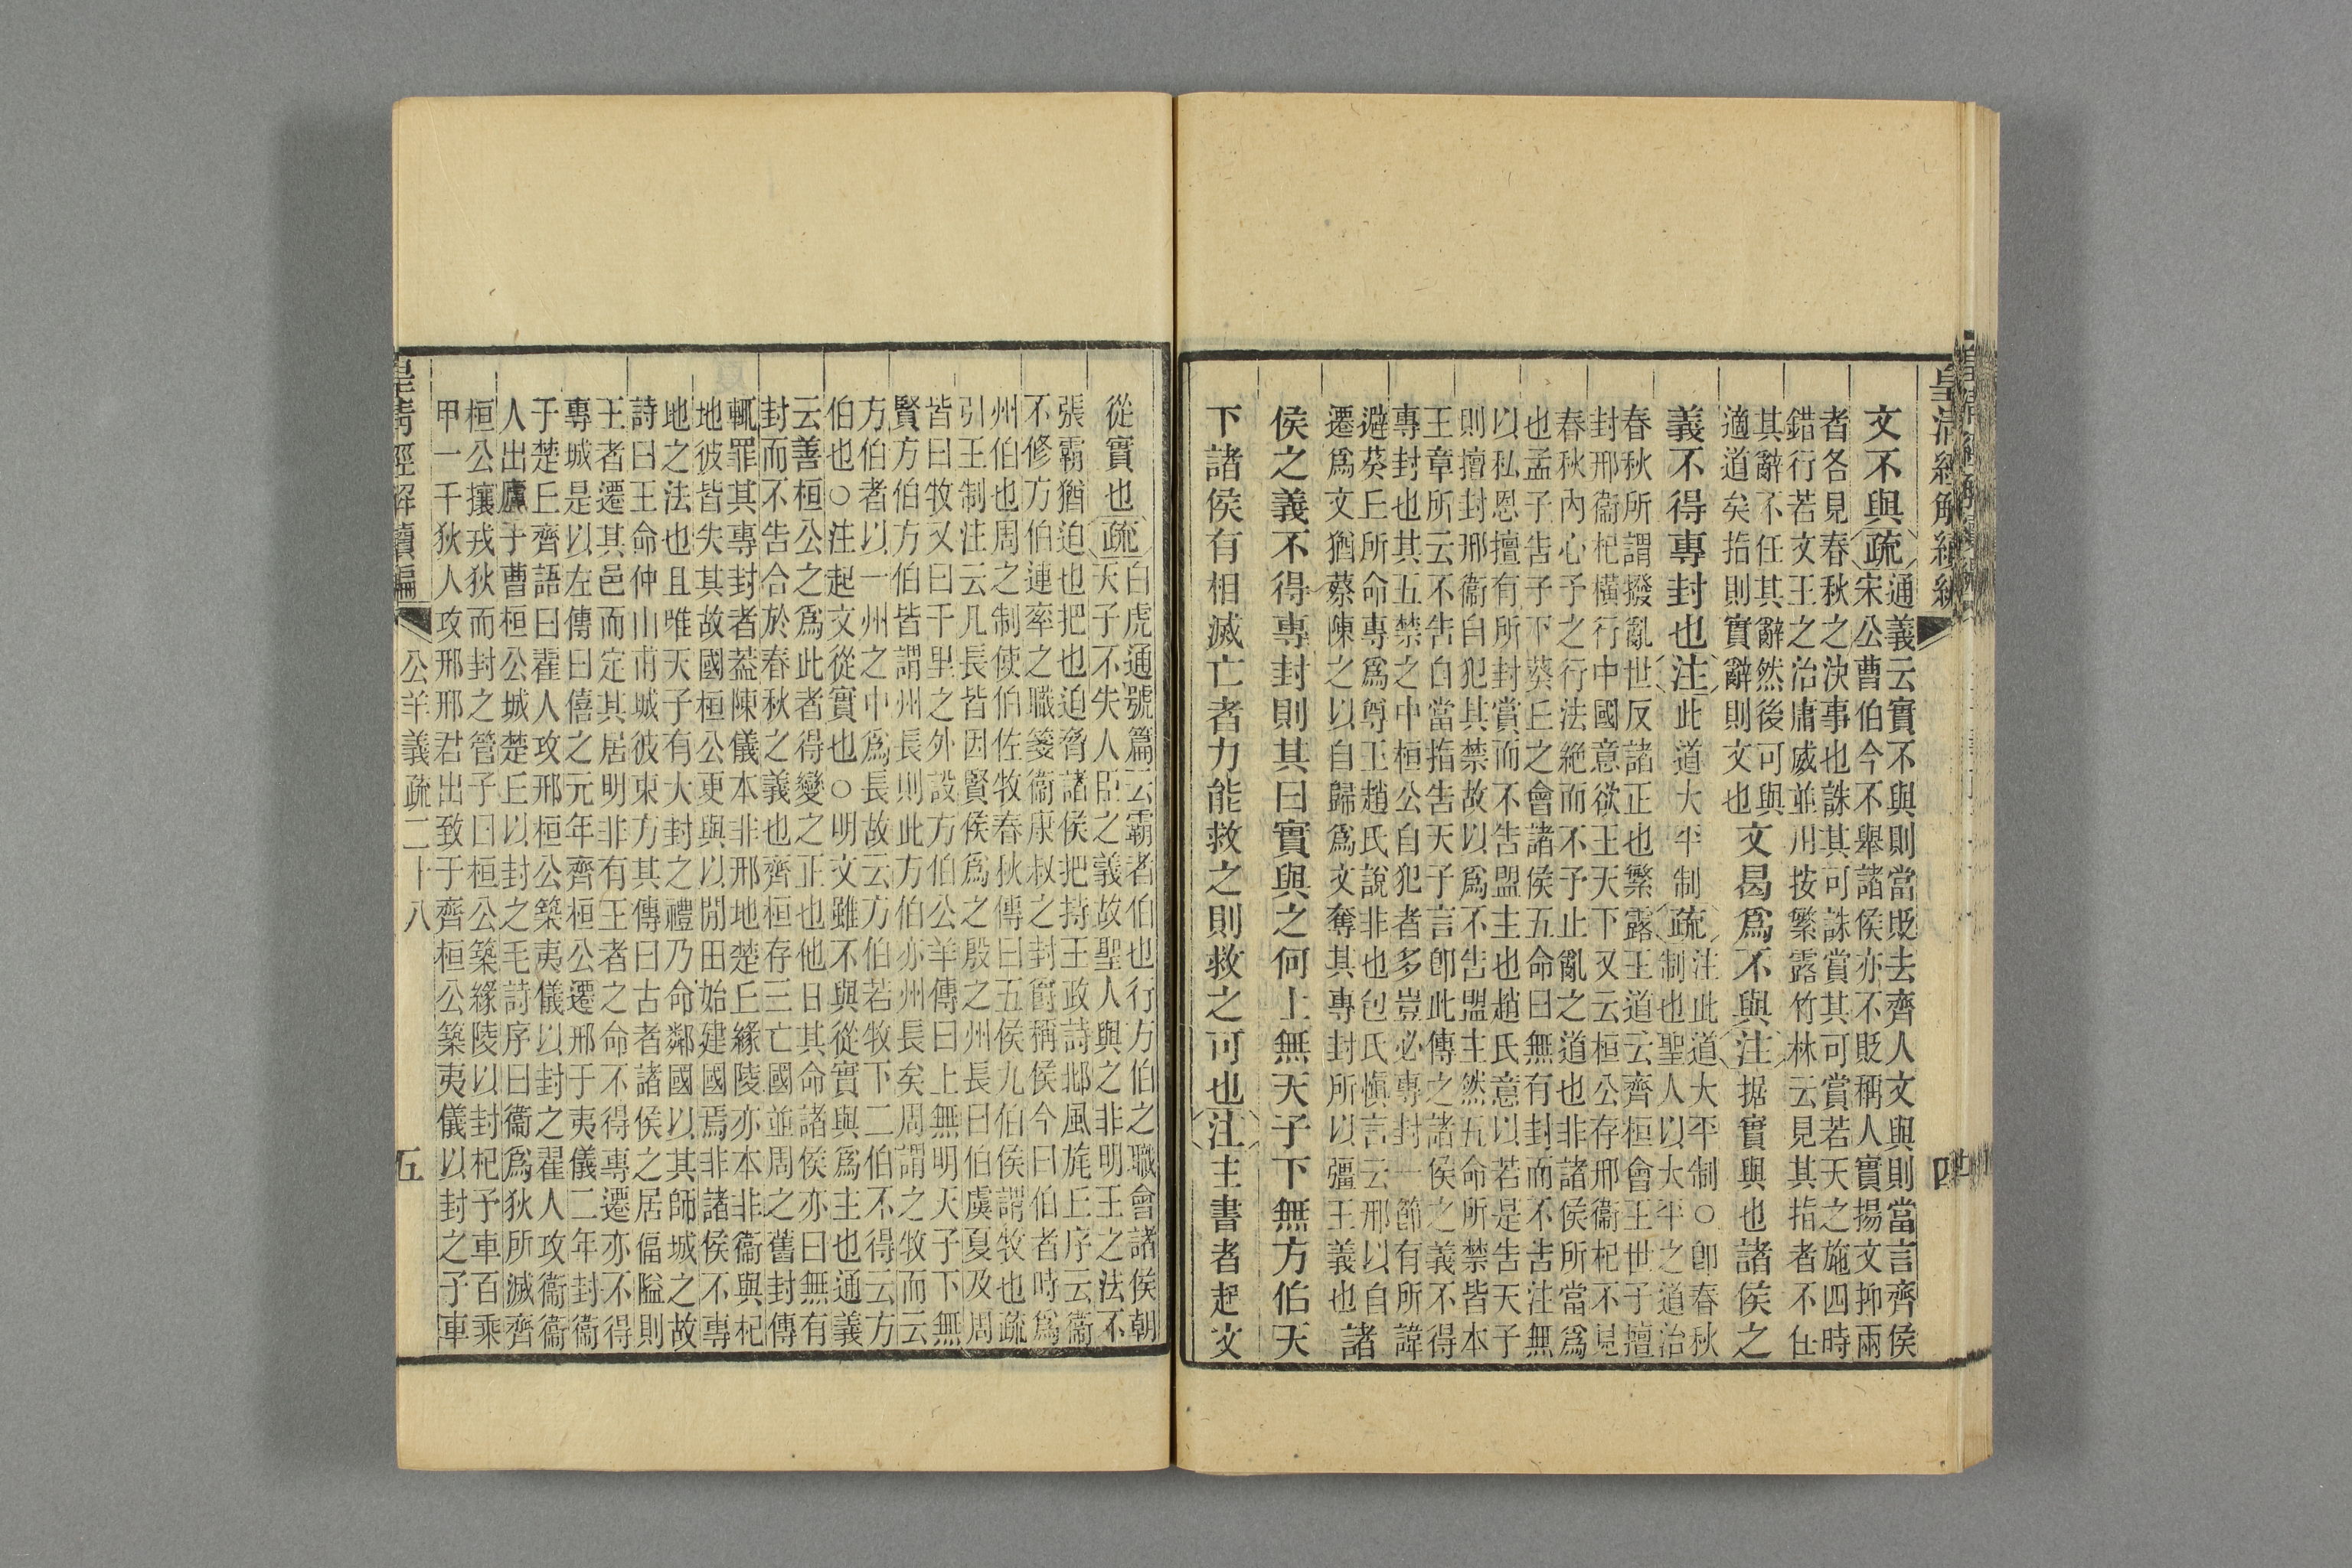 皇清經解續編
文不與疏通義云實不與則當旣去齊人文與則當言齊侯
宋公曹伯今不舉諸侯亦不貶稱人實揚文抑兩
者各見春秋之決事也誅其可誅賞其可賞若天之施四時
錯行若文王之治庸威並用按繁露竹林云見其指者不任
其辭不任其辭然後可與
適道矣指則實辭則文也文曷爲不與注据實與也諸侯之
義不得專封也注此道大平制疏注此道大平制○卽春秋
制也聖人以大平之道治
春秋所謂撥亂世反諸正也繁露王道云齊桓會王世子擅
封邢衞杞橫行中國意欲王天下又云桓公存邢衞杞不見
春秋內心予之行法絶而不予止亂之道也非諸侯所當爲
也孟子告子下葵丘之會諸侯五命曰無有封而不告注無
以私恩擅有所封賞而不告盟主也趙氏意以若是告天子
則擅封邢衞自犯其禁故以爲不告盟主然五命所禁皆本
王章所云不告自當指告天子言卽此傳之諸侯之義不得
專封也其五禁之中桓公自犯者多豈必專封一節有所諱
避葵丘所命專爲尊王趙氏說非也包氏愼言云邢以自
遷爲文猶蔡陳之以自歸爲文奪其專封所以彊王義也諸
侯之義不得專封則其曰實與之何上無天子下無方伯天
下諸侯有相滅亡者力能救之則救之可也注主書者起文
四
從實也疏白虎通號篇云霸者伯也行方伯之職會諸侯朝
天子不失人臣之義故聖人與之非明王之法不
張霸猶迫也把也迫脅諸侯把持王政詩邶風旄丘序云衞
不修方伯連率之職箋衞康叔之封爵稱侯今曰伯者時爲
州伯也周之制使伯佐牧春秋傳曰五侯九伯侯謂牧也疏
引王制注云凡長皆因賢侯爲之殷之州長曰伯虞夏及周
皆曰牧又曰千里之外設方伯公羊傳曰上無明天子下無
賢方伯方伯皆謂州長則此方伯亦州長矣周謂之牧而云
方伯者以一州之中爲長故云方伯若牧下二伯不得云方
伯也○注起文從實也○明文雖不與從實與爲主也通義
云善桓公之爲此者得變之正也他日其命諸侯亦曰無有
封而不告合於春秋之義也齊桓存三亡國並周之舊封傳
輒罪其專封者葢陳儀本非邢地楚丘緣陵亦本非衞與杞
地彼皆失其故國桓公更與以閒田始建國焉非諸侯不專
地之法也且唯天子有大封之禮乃命鄰國以其師城之故
詩曰王命仲山甫城彼東方其傳曰古者諸侯之居偪隘則
王者遷其邑而定其居明非有王者之命不得專遷亦不得
專城是以左傳曰僖之元年齊桓公遷邢于夷儀二年封衞
于楚丘齊語曰翟人攻邢桓公築夷儀以封之翟人攻衞衞
人出廬于曹桓公城楚丘以封之毛詩序曰衞爲狄所滅齊
桓公攘戎狄而封之管子曰桓公築緣陵以封杞予車百乘
甲一千狄人攻邢邢君出致于齊桓公築夷儀以封之予車
皇清經解續編
公羊義疏二十八
五